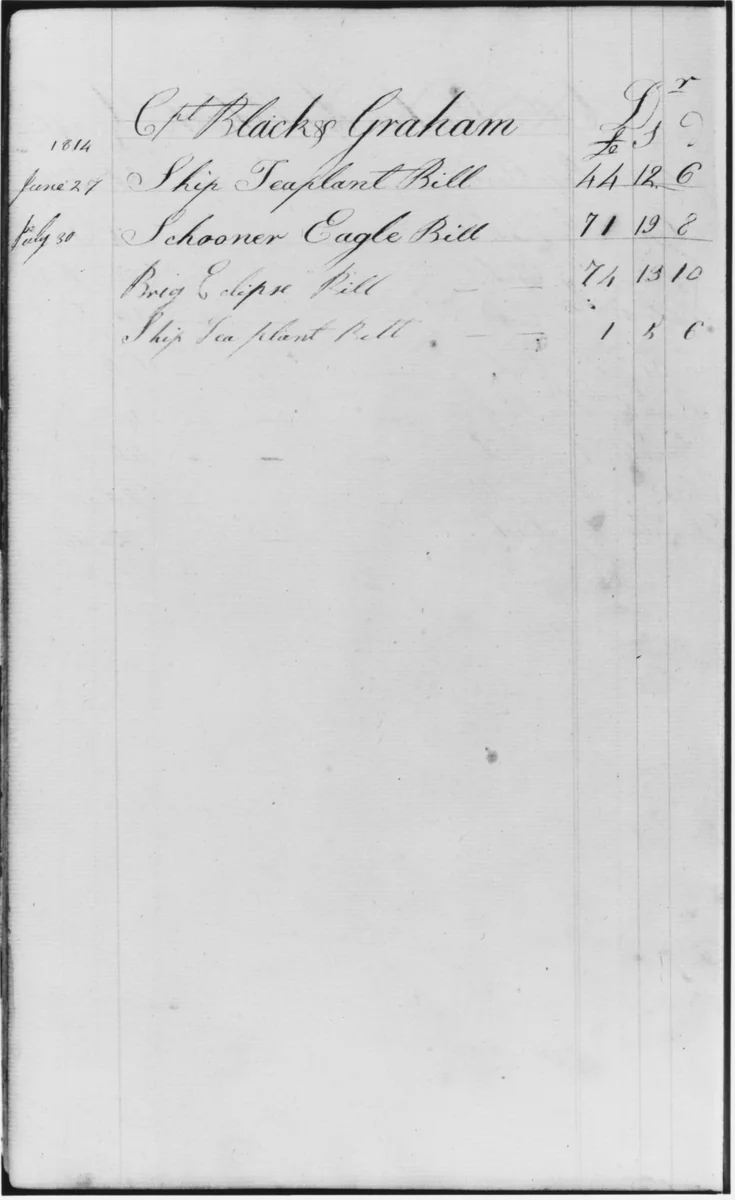 Cpt Black & Graham Dr
1814 £ S D
June 27 Ship Teaplant Bill 44 12 6
July 30 Schooner Eagle Bill 71 19 8
Brig Eclipse Bill — — 74 13 10
Ship Tea plant Bill — — 1 5 6